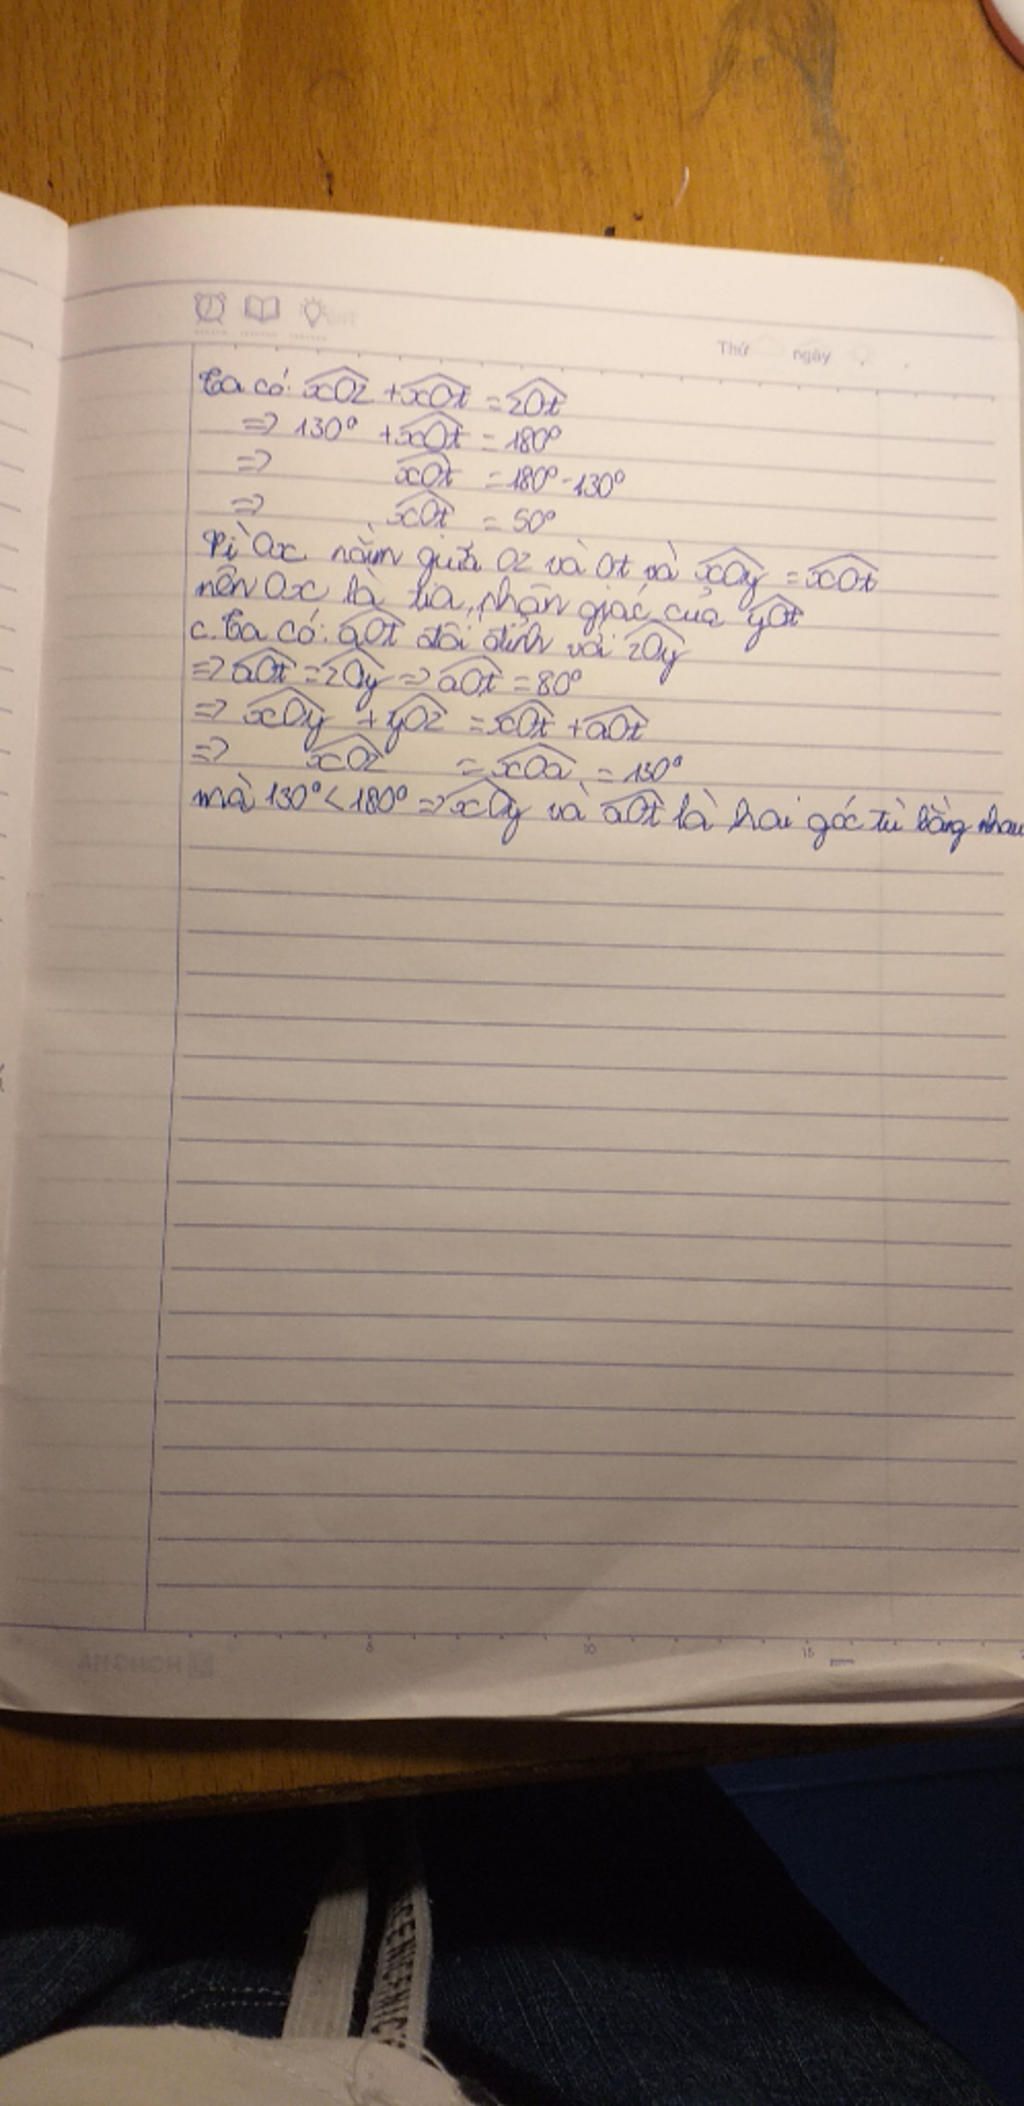 Thứ ngày
Ta có: xOz + xOt = zOt
=> 130° + xOt = 180°
=> xOt = 180° - 130°
=> xOt = 50°
Vì Ox nằm giữa Oz và Ot và xOy = xOt
nên Ox là tia phân giác của yOt
c. Ta có: aOt đối đỉnh với zOy
=> aOt = zOy => aOt = 80°
=> xOy + yOz = xOt + aOt
=> xOz = xOa = 130°
mà 130° < 180° => xOy và aOt là hai góc tù bằng nhau
8 10 15